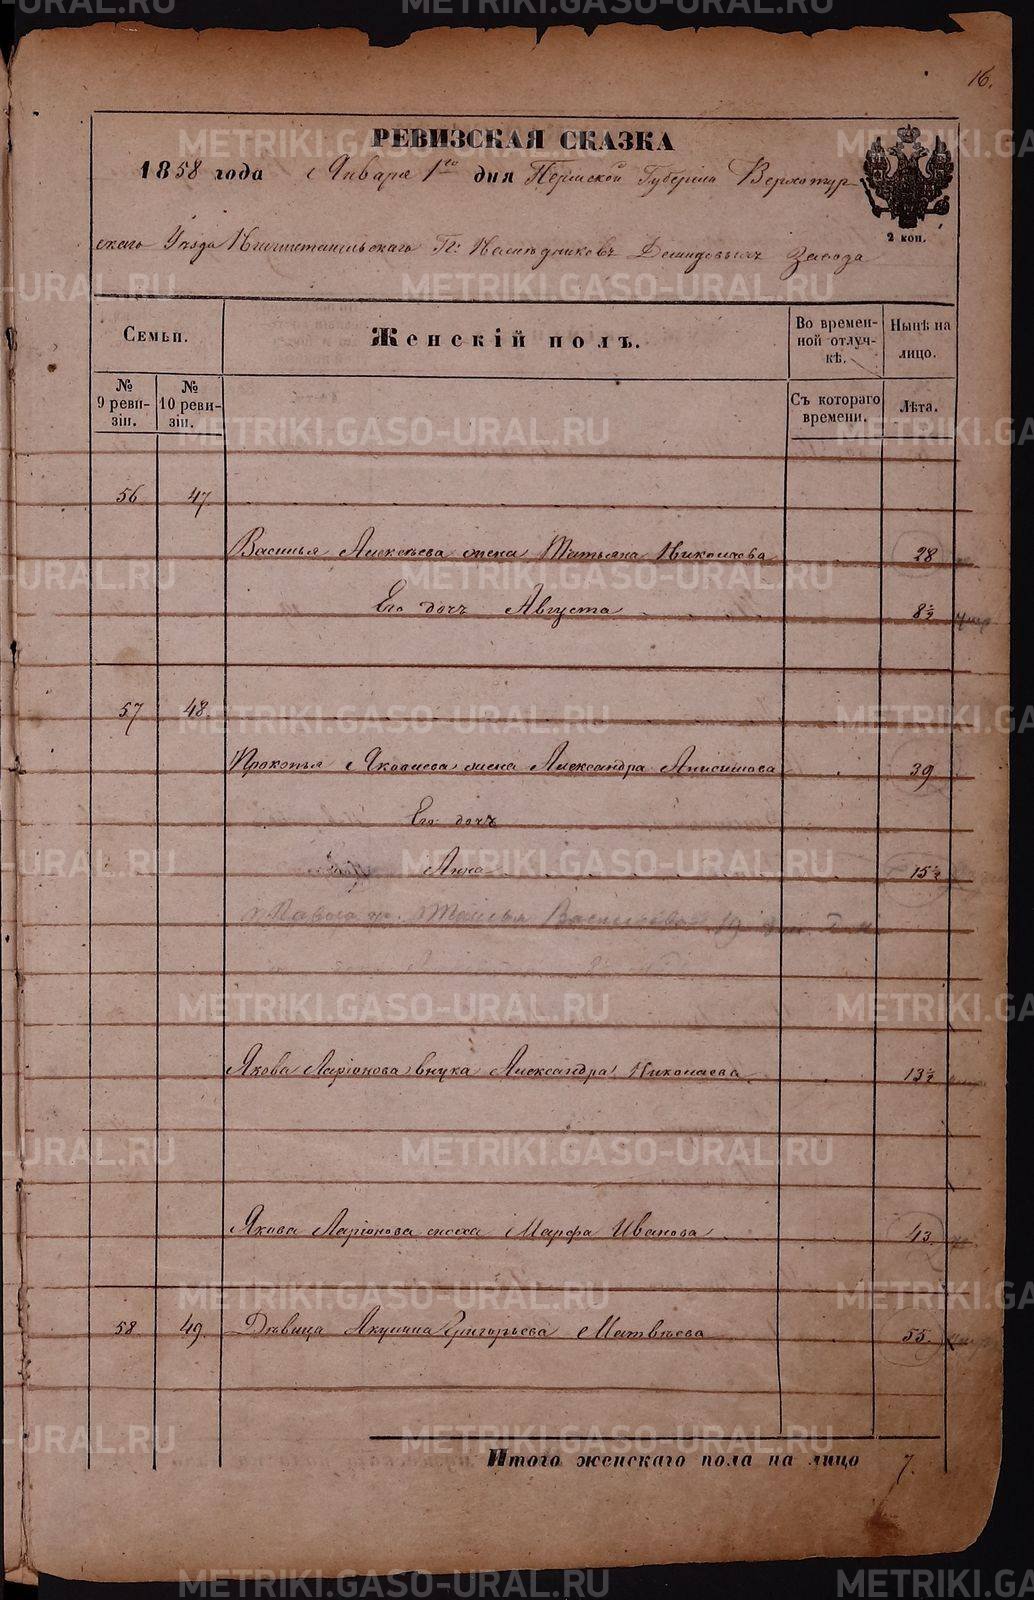 16.
РЕВИЗСКАЯ СКАЗКА
1858 года Января 1го дня Пермской Губерніи Верхотур
скаго Уѣзда Нижнетагильскаго Гг: Наслѣдниковъ Демидовыхъ Завода
2 коп.
Семьи. Женскій полъ. Во времен-ной отлуч-кѣ. Нынѣ на лицо.
№ 9 реви-зіи. № 10 реви-зіи. Съ котораго времени. Лѣта.
56 47
Василья Алексѣева жена Татьяна Николаева 28
Его дочь Августа 8½
57 48.
Прокопья Яковлева жена Александра Анисимова 39
Его дочь
Анна 15½
Василь 19
Якова Ларіонова внука Александра Николаева 13½
Якова Ларіонова сноха Марфа Иванова 43.
58 49. Дѣвица Акулина Григорьева Матвѣева 55.
Итого женскаго пола на лицо 7.
METRIKI.GASO-URAL.RU